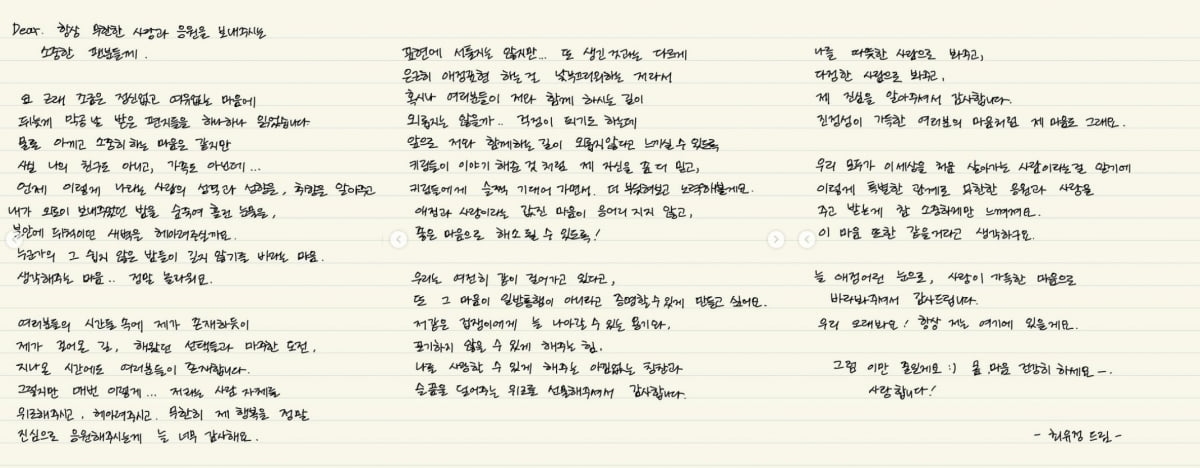 Dear. 항상 무한한 사랑과 응원을 보내주시는
소중한 팬분들께.
요 근래 조금은 정신없고 여유없는 마음에
뒤늦게 막공날 받은 편지들을 하나하나 읽었습니다
물론 아끼고 소중히하는 마음은 같지만
사실 나의 친구도 아니고, 가족도 아닌데...
언제 이렇게 나라는 사람의 성격과 성향을, 취향을 알아주고
내가 외로이 보내주었던 밤을 숨죽여 흘린 눈물을,
불안에 뒤척이던 새벽을 헤아려주실까요.
누군가의 그 쉽지 않은 밤들이 길지 않기를 바라는 마음.
생각해주는 마음.. 정말 놀라워요.
여러분들의 시간들 속에 제가 존재하듯이
제가 걸어온 길, 해왔던 선택들과 마주한 도전,
지나온 시간에도 여러분들이 존재합니다.
그렇지만 매번 이렇게... 저라는 사람 자체를
위로해주시고, 헤아려주시고. 무한히 제 행복을 정말
진심으로 응원해주시는게 늘 너무 감사해요.
표현에 서툴지는 않지만... 또 생긴것과는 다르게
은근히 애정표현 하는걸 낯부끄러워하는 저라서
혹시나 여러분들이 저와 함께 하시는 길이
외롭지는 않을까.. 걱정이 되기도 하는데
앞으로 저와 함께하는 길이 외롭지않다고 느끼실 수 있도록
키링들이 이야기 해준 것 처럼 제 자신을 좀 더 믿고,
키링들에게 슬쩍 기대어 가면서. 더 노력해볼게요.
애정과 사랑이라는 값진 마음이 응어리 지지 않고,
좋은 마음으로 해소 될 수 있도록!
우리는 여전히 같이 걸어가고 있다고,
또 그 마음이 일방통행이 아니라고 증명할 수 있게 만들고 싶어요.
저같은 겁쟁이에게 늘 나아갈 수 있는 용기와,
포기하지 않을 수 있게 해주는 힘.
나를 사랑할 수 있게 해주는 아낌없는 칭찬과
슬픔을 덜어주는 위로를 선물해주셔서 감사합니다.
나를 따뜻한 사람으로 봐주고,
다정한 사람으로 봐주고,
제 진심을 알아주셔서 감사합니다.
진정성이 가득한 여러분의 마음처럼 제 마음도 그래요.
우리 모두가 이 세상을 처음 살아가는 사람이라는걸 알기에
이렇게 특별한 관계로 무한한 응원과 사랑을
주고 받는게 참 소중하게만 느껴져요.
이 마음 또한 같을거라고 생각하구요.
늘 애정어린 눈으로, 사랑이 가득한 마음으로
바라봐주셔서 감사드립니다.
우리 오래봐요! 항상 저는 여기에 있을게요.
그럼 이만 줄일게요 :) 몸, 마음 건강히 하세요-.
사랑합니다!
- 최유정 드림 -